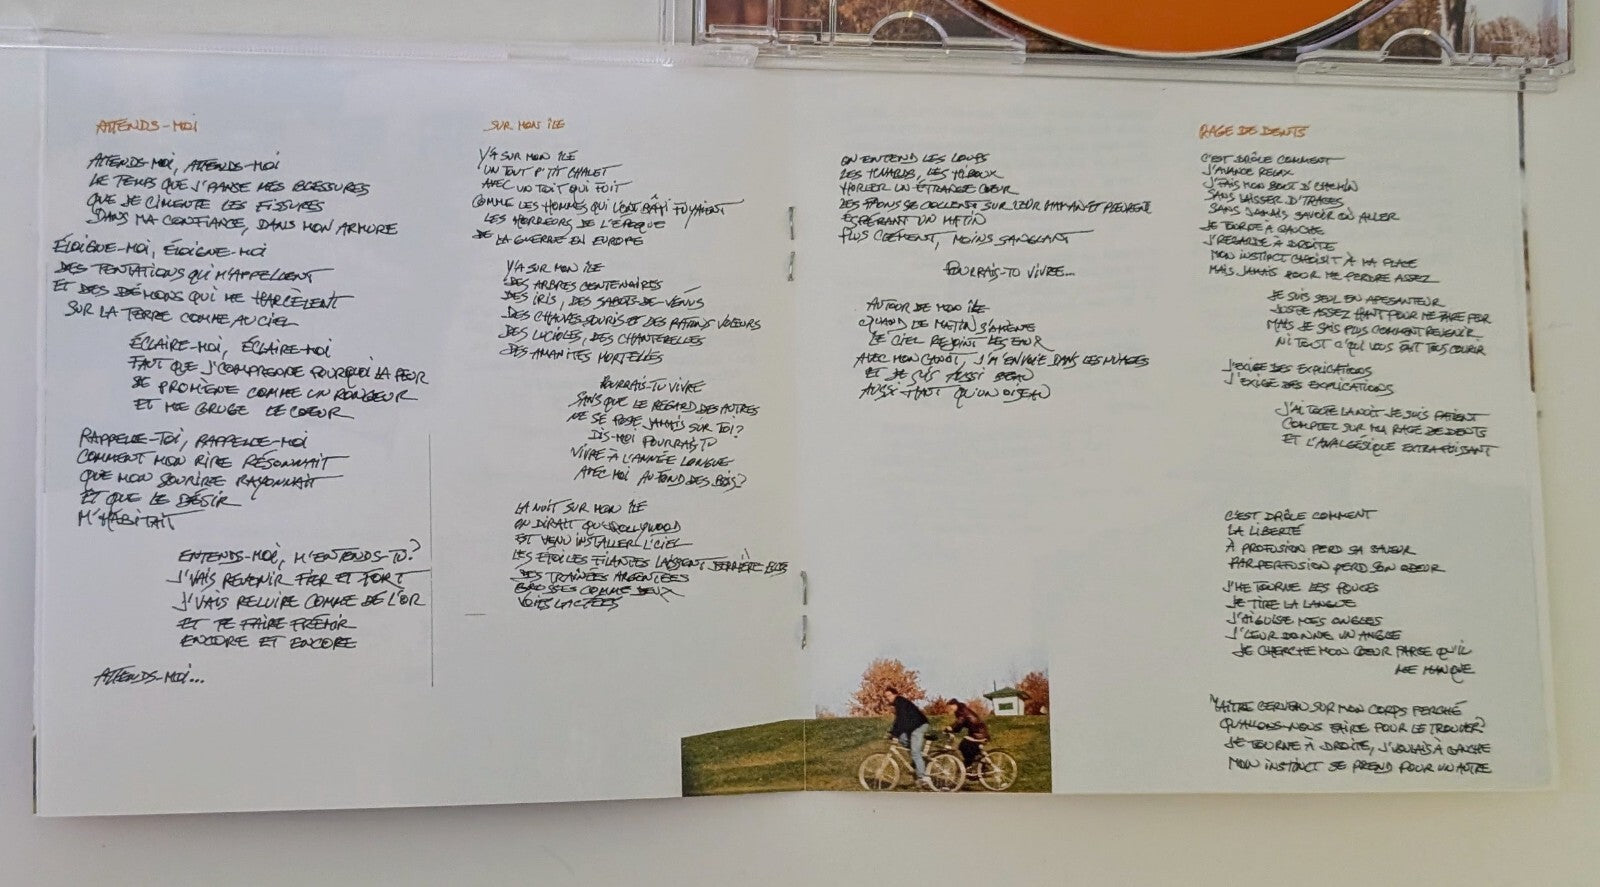 ATTENDS-MOI
ATTENDS-MOI, ATTENDS-MOI
LE TEMPS QUE J'PANSE MES BLESSURES
QUE JE CIMENTE LES FISSURES
DANS MA CONFIANCE, DANS MON ARMURE
ÉLOIGNE-MOI, ÉLOIGNE-MOI
DES TENTATIONS QUI M'APPELLENT
ET DES DÉMONS QUI ME HARCÈLENT
SUR LA TERRE COMME AU CIEL
ÉCLAIRE-MOI, ÉCLAIRE-MOI
FAUT QUE J'COMPRENDE POURQUOI LA PEUR
SE PROMÈNE COMME UN RONGEUR
ET ME GRUGE LE COEUR
RAPPELLE-TOI, RAPPELLE-MOI
COMMENT MON RIRE RÉSONNAIT
QUE MON SOURIRE RAYONNAIT
ET QUE LE DÉSIR
M'HABITAIT
ENTENDS-MOI, M'ENTENDS-TU?
J'VAIS REVENIR FIER ET FORT
J'VAIS RELUIRE COMME DE L'OR
ET TE FAIRE FRÉMIR
ENCORE ET ENCORE
ATTENDS-MOI...
SUR MON ÎLE
Y'A SUR MON ÎLE
UN TOUT P'TIT CHALET
AVEC UN TOIT QUI FUIT
COMME LES HOMMES QUI L'ONT BÂTI FUYAIENT
LES HORREURS DE L'ÉPOQUE
DE LA GUERRE EN EUROPE
Y'A SUR MON ÎLE
DES ARBRES CENTENAIRES
DES IRIS, DES SABOTS-DE-VÉNUS
DES CHAUVES-SOURIS ET DES RATONS VOLEURS
DES LUCIOLES, DES CHANTERELLES
DES AMANITES MORTELLES
POURRAIS-TU VIVRE
SANS QUE LE REGARD DES AUTRES
NE SE POSE JAMAIS SUR TOI?
DIS-MOI POURRAIS-TU
VIVRE À L'ANNÉE LONGUE
AVEC MOI AU FOND DES BOIS?
LA NUIT SUR MON ÎLE
ON DIRAIT QU'HOLLYWOOD
EST VENU INSTALLER L'CIEL
LES ÉTOILES FILANTES LAISSENT DERRIÈRE ELLES
DES TRAÎNÉES ARGENTÉES
GROSSES COMME DEUX
VOIES LACTÉES
ON ENTEND LES LOUPS
LES HUARDS, LES HIBOUX
HURLER UN ÉTRANGE COEUR
DES FAONS SE COLLENT SUR LEUR MAMAN ET PLEURENT
ESPÉRANT UN MATIN
PLUS CLÉMENT, MOINS SANGLANT
POURRAIS-TU VIVRE...
AUTOUR DE MON ÎLE
QUAND LE MATIN S'AMÈNE
LE CIEL REJOINT LES EAUX
AVEC MON CANOT, J'M'ENVOLE DANS LES NUAGES
ET JE SUIS AUSSI BEAU
AUSSI HAUT QU'UN OISEAU
RAGE DE DENTS
C'EST DRÔLE COMMENT
J'AVANCE RELAX
J'FAIS MON BOUT D'CHEMIN
SANS LAISSER D'TRACES
SANS JAMAIS SAVOIR OÙ ALLER
JE TOURNE À GAUCHE
J'REGARDE À DROITE
MON INSTINCT CHOISIT À MA PLACE
MAIS JAMAIS POUR ME PERDRE ASSEZ
JE SUIS SEUL EN APESANTEUR
JUSTE ASSEZ HAUT POUR ME FAIRE PEUR
MAIS JE SAIS PLUS COMMENT REVENIR
NI TOUT C'QUI VOUS FAIT TOUS COURIR
J'EXIGE DES EXPLICATIONS
J'EXIGE DES EXPLICATIONS
J'AI TOUTE LA NUIT JE SUIS PATIENT
COMPTEZ SUR MA RAGE DE DENTS
ET L'ANALGÉSIQUE EXTRA-PUISSANT
C'EST DRÔLE COMMENT
LA LIBERTÉ
À PROFUSION PERD SA SAVEUR
PAR PERFUSION PERD SON ODEUR
J'ME TOURNE LES POUCES
JE TIRE LA LANGUE
J'AIGUISE MES ONGLES
J'LEUR DONNE UN ANGLE
JE CHERCHE MON COEUR PARCE QU'IL
ME MANQUE
MAÎTRE CERVEAU SUR MON CORPS PERCHÉ
QU'ALLONS-NOUS FAIRE POUR LE TROUVER?
JE TOURNE À DROITE, J'VOULAIS À GAUCHE
MON INSTINCT SE PREND POUR UN AUTRE